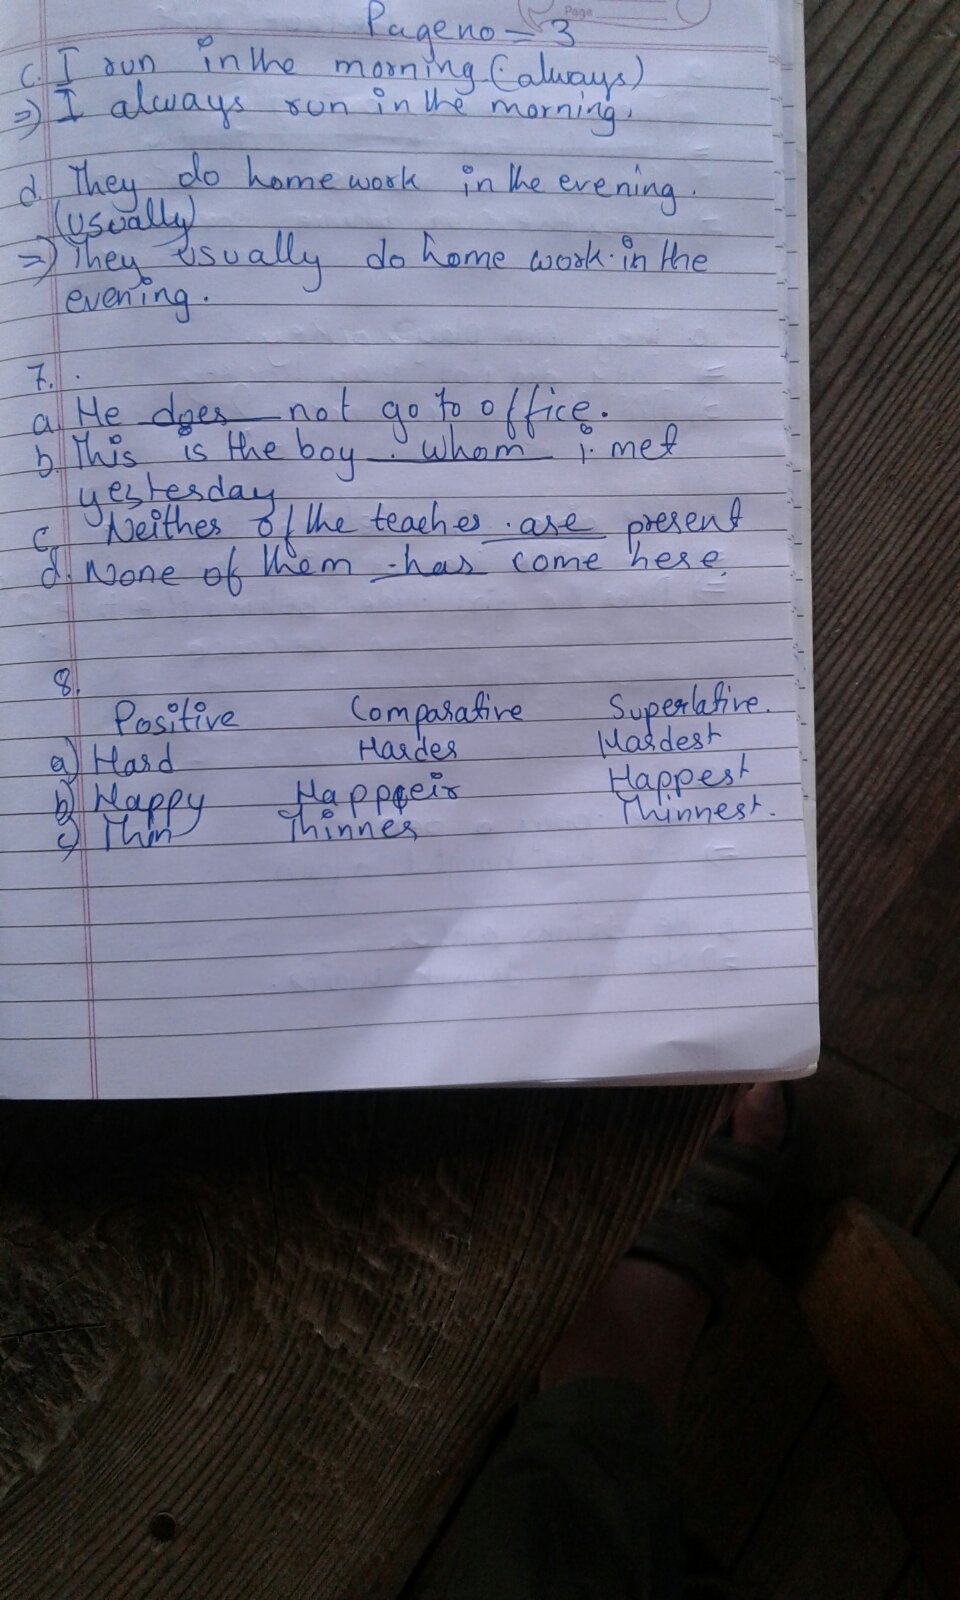 Page
Page no - 3
c. I run in the morning. (always)
=> I always run in the morning.
d. They do home work in the evening.
(usually)
=> They usually do home work in the
evening.
7.
a. He does not go to office.
b. This is the boy whom i met
yesterday
c. Neither of the teaches are present
d. None of them has come here.
8.
Positive Comparative Superlative.
a) Hard Harder Hardest
b) Happy Happeir Happest
c) Thin Thinner Thinnest.